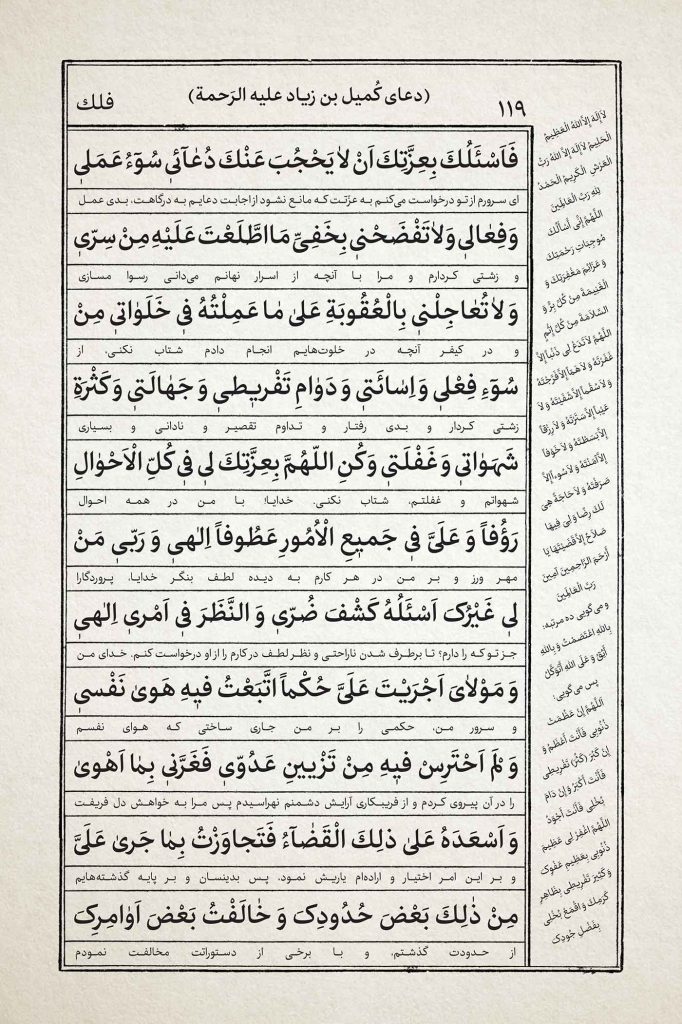 ۱۱۹
(دعای کُمیل بن زیاد علیه الرَحمة)
فلك
فَاَسْئَلُكَ بِعِزَّتِكَ اَنْ لاٰ يَحْجُبَ عَنْكَ دُعٰآئي سُوٓءُ عَمَلي
ای سرورم از تو درخواست می‌کنم به عزّتت که مانع نشود از اجابت دعایم به درگاهت، بدی عمل
وَفِعٰالي وَلاٰتَفْضَحْني بِخَفِيِّ مَا اطَّلَعْتَ عَلَيْهِ مِنْ سِرّي
و زشتی کردارم و مرا با آنچه از اسرار نهانم می‌دانی رسوا مسازی
وَلاٰ تُعٰاجِلْني بِالْعُقُوبَةِ عَلىٰ مٰا عَمِلْتُهُ في خَلَوٰاتي مِنْ
و در کیفر آنچه در خلوت‌هایم انجام دادم شتاب نکنی. از
سُوٓءِ فِعْلي وَاِسٰائَتي وَ دَوٰامِ تَفْريطي وَ جَهٰالَتي وَكَثْرَةِ
زشتی کردار و بدی رفتار و تداوم تقصیر و نادانی و بسیاری
شَهَوٰاتي وَ غَفْلَتي وَكُنِ اللّٰهُمَّ بِعِزَّتِكَ لي في كُلِّ الْاَحْوٰالِ
شهواتم و غفلتم، شتاب نکنی. خدایا؛ با من در همه احوال
رَؤُفاً وَ عَلَيَّ في جَميعِ الْاُمُورِ عَطُوفاً اِلٰهي وَ رَبّي مَنْ
مهر ورز و بر من در هر کارم به دیده لطف بنگر خدایا، پروردگارا
لي غَيْرُک اَسْئَلُهُ كَشْفَ ضُرّي وَ النَّظَرَ في اَمْري اِلٰهي
جز تو که را دارم؟ تا برطرف شدن ناراحتی و نظر لطف در کارم را از او درخواست کنم. خدای من
وَ مَوْلاٰيَ اَجْرَيْتَ عَلَيَّ حُكْماً اتَّبَعْتُ فيهِ هَوىٰ نَفْسي
و سرور من، حکمی را بر من جاری ساختی که هوای نفسم
وَ لَمْ اَحْتَرِسْ فيهِ مِنْ تَزْيينِ عَدُوّي فَغَرَّني بِمٰا اَهْوىٰ
را در آن پیروی کردم و از فریبکاری آرایش دشمنم نهراسیدم پس مرا به خواهش دل فریفت
وَ اَسْعَدَهُ عَلىٰ ذٰلِكَ الْقَضٰآءُ فَتَجاوَزْتُ بِمٰا جَرىٰ عَلَيَّ
و بر این امر اختیار و اراده‌ام یاریش نمود، پس بدینسان و بر پایه گذشته‌هایم
مِنْ ذٰلِكَ بَعْضَ حُدُودِک وَ خٰالَفْتُ بَعْضَ اَوٰامِرِک
از حدودت گذشتم، و با برخی از دستوراتت مخالفت نمودم
لاٰ اِلٰهَ اِلاَّ اللهُ الْعَظيمُ
الْحَليمُ لاٰ اِلٰهَ اِلاَّ اللهُ رَبُّ
الْعَرْشِ الْكَريمُ الْحَمْدُ
لِلهِ رَبِّ الْعٰالَمينَ
اَللّٰهُمَّ اِنّي اَسْأَلُكَ
مُوجِبٰاتِ رَحْمَتِكَ
وَ عَزٰائِمَ مَغْفِرَتِكَ وَ
الْغَنيمَةَ مِنْ كُلِّ بِرٍّ وَ
السَّلاٰمَةَ مِنْ كُلِّ اِثْمٍ
اَللّٰهُمَّ لاٰتَدَعْ لي ذَنْباً اِلاّٰ
غَفَرْتَهُ وَ لاٰ هَمّاً اِلاّٰفَرَّجْتَهُ
وَ لاٰ سُقْماً اِلاّٰ شَفَيْتَهُ وَ لاٰ
عَيْباً اِلاّٰ سَتَرْتَهُ وَ لاٰ رِزْقاً
اِلاّٰ بَسَطْتَهُ وَ لاٰ خَوْفاً
اِلاّٰ آمَنْتَهُ وَ لاٰ سُوءاً اِلاّٰ
صَرَفْتَهُ وَ لاٰ حٰاجَةً هِيَ
لَكَ رِضًا وَ لِيَ فيهٰا
صَلاٰحٌ اِلاّٰ قَضَيْتَهٰا يٰا
اَرْحَمَ الرّٰاحِمينَ آمينَ
رَبَّ الْعٰالَمينَ
و می‌گویی ده مرتبه:
بِاللهِ اعْتَصَمْتُ وَ بِاللهِ
اَثِقُ وَ عَلَى اللهِ اَتَوَكَّلُ
پس می‌گویی:
اَللّٰهُمَّ اِنْ عَظُمَتْ
ذُنُوبي فَاَنْتَ اَعْظَمُ وَ
اِنْ كَبُرَ (كَثُرَ) تَفْريطي
فَاَنْتَ اَكْبَرُ وَ اِنْ دٰامَ
بُخْلي فَاَنْتَ اَجْوَدُ
اَللّٰهُمَّ اغْفِرْ لي عَظيمَ
ذُنُوبي بِعَظيمِ عَفْوِک
وَ كَثيرَ تَفْريطي بِظٰاهِرِ
كَرَمِكَ وَ اقْمَعْ بُخْلي
بِفَضْلِ جُودِک